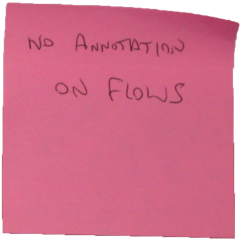 NO ANNOTATION
ON FLOWS